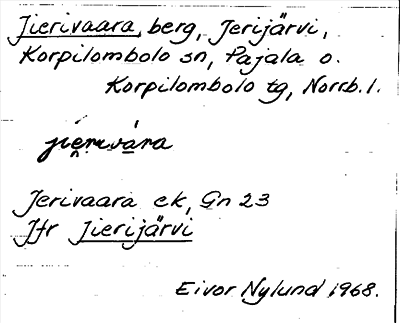 Jierivaara, berg, Jerijärvi,
Korpilombolo sn, Pajala o.
Korpilombolo tg, Norrb. l.
jierivāra
Jerivaara ek, Gn 23
Jfr Jierijärvi
Eivor Nylund 1968.